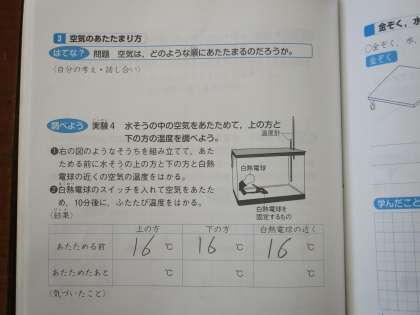 3 空気のあたたまり方
はてな? 問題 空気は、どのような順にあたたまるのだろうか。
〈自分の考え・話し合い〉
調べよう 実験4 水そうの中の空気をあたためて、上の方と
下の方の温度を調べよう。
❶右の図のようなそうちを組み立てて、あた
ためる前に水そうの上の方と下の方と白熱
電球の近くの空気の温度をはかる。
❷白熱電球のスイッチを入れて空気をあたた
め、10分後に、ふたたび温度をはかる。
温度計
白熱電球
白熱電球を
固定するもの
〈結果〉
上の方 下の方 白熱電球の近く
あたためる前 16 ℃ 16 ℃ 16 ℃
あたためたあと ℃ ℃ ℃
〈気づいたこと〉
金ぞく、水
金ぞく、水、
金ぞく
学んだこと